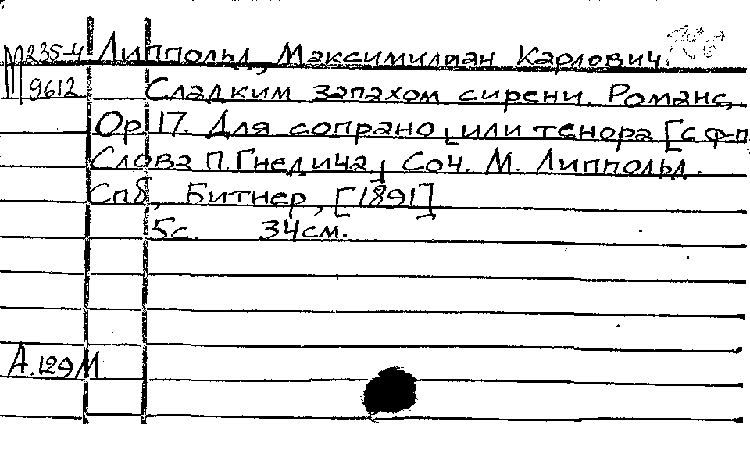 М235-4 Липпольд, Максимилиан Карлович.
9612 Сладким запахом сирени. Романс,
Op 17. Для сопрано [или тенора [с ф-п
Слова П. Гнедича] Соч. М. Липпольд.
Спб, Битнер, [1891]
5с 34см.
А.129М